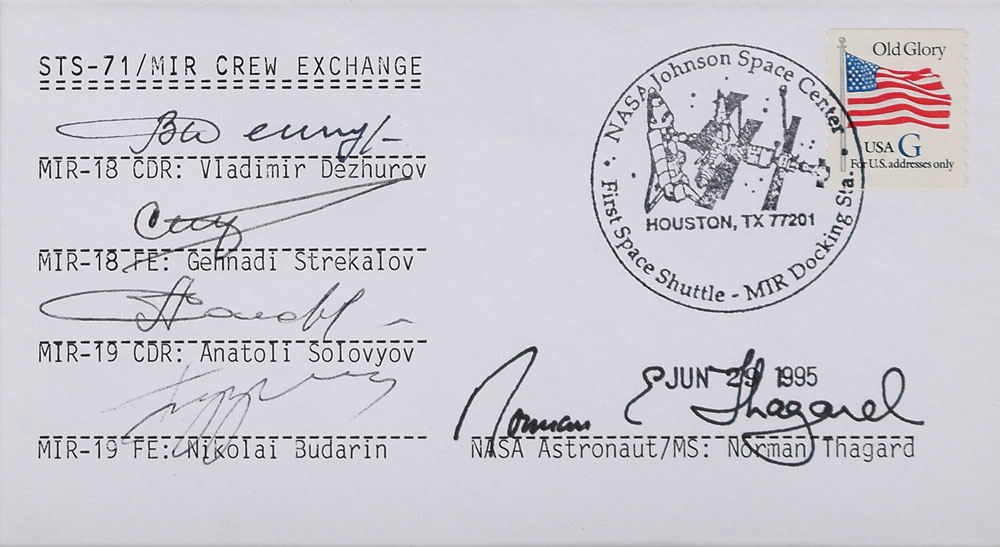 STS-71/MIR CREW EXCHANGE
MIR-18 CDR: Vladimir Dezhurov
MIR-18 FE: Gennadi Strekalov
MIR-19 CDR: Anatoli Solovyov
MIR-19 FE: Nikolai Budarin
NASA Johnson Space Center
HOUSTON, TX 77201
First Space Shuttle - MIR Docking Sta.
Old Glory
USA G
For U.S. addresses only
JUN 29 1995
Norman E Thagard
NASA Astronaut/MS: Norman Thagard